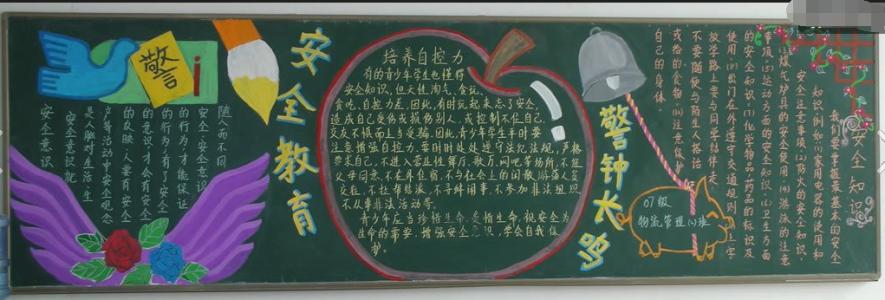 警
i
安全意识
安全意识就
是人脑对生活、生
产等活动中安全观念
的反映,人要有安全
的意识,才会有安全
的行为;有了安全
的行为,才能保证
安全。安全意识
随人而不同
安全教育
培养自控力
有的青少年学生也懂得
安全知识,但天性淘气、贪玩、
贪吃,自控力差,因此,有时玩起来忘了安全,
造成自己受伤或损伤别人,或控制不住自己,
交友不慎而上当受骗。因此,青少年学生平时要
注意增强自控力。要时时处处遵守法纪法规,严格
要求自己,不进入营业性舞厅、歌厅、网吧等场所,不经
父母同意不在外住宿,不与社会上的闲散游荡人员
交往,不拉帮结派,不寻衅闹事,不参加非法组织
不从事非法活动等。
青少年应当珍惜生命,爱惜生命,视安全为
生命的需要,增强安全意识,学会自我保
护。
警钟长鸣
07级
物流管理(1)班
安全知识
我们要掌握最基本的安全
知识,例如:(1)家用电器的使用和
安全注意事项;(2)防火的安全知识;
煤气炉具的安全使用;(4)游泳的注意
事项;(5)运动方面的安全知识;(6)卫生方面
的安全知识;(7)化学物品、药品的标识及
使用;(8)出门在外遵守交通规则;(9)上学
放学路上要与同学结伴走,
不要随便与陌生人搭话
或给的食物;(10)注意保护
自己的身体。